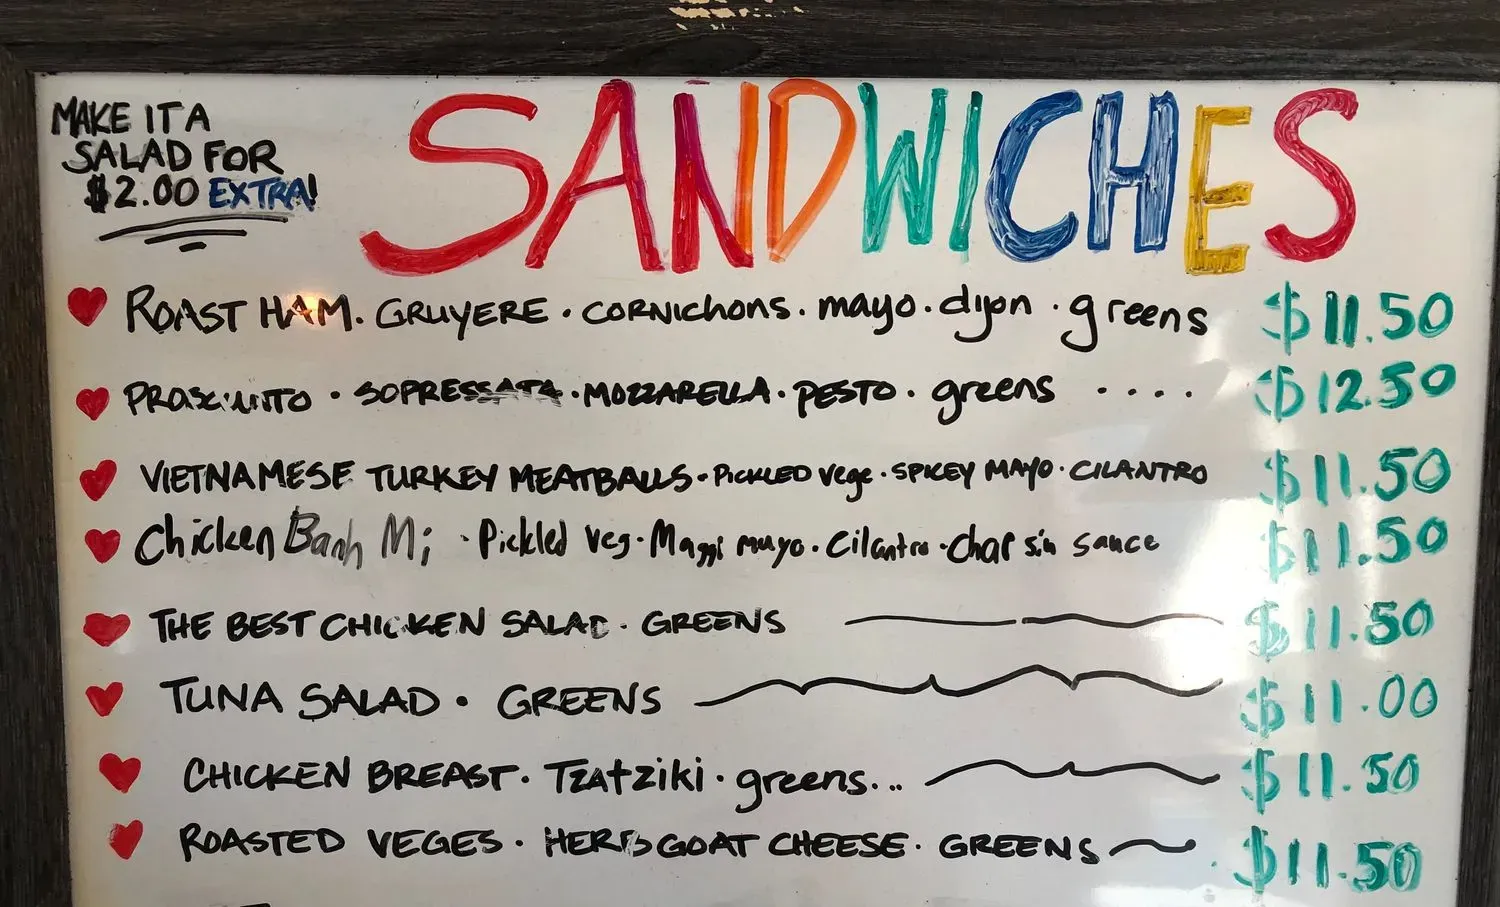 MAKE IT A
SALAD FOR
$2.00 EXTRA!
SANDWICHES
ROAST HAM. GRUYERE · CORNichons. mayo. dijon · greens $11.50
PROSCIUTTO · SOPRESSATA · MOZZARELLA · PESTO · greens .... $12.50
VIETNAMESE TURKEY MEATBALLS · PICKLED Vege · SPICEY MAYO · CILANTRO $11.50
Chicken Banh Mi · Pickled Veg · Maggi mayo · Cilantro · Char siu sauce $11.50
THE BEST CHICKEN SALAD · GREENS $11.50
TUNA SALAD · GREENS $11.00
CHICKEN BREAST · Tzatziki · greens... $11.50
ROASTED VEGES · HERB GOAT CHEESE · GREENS $11.50